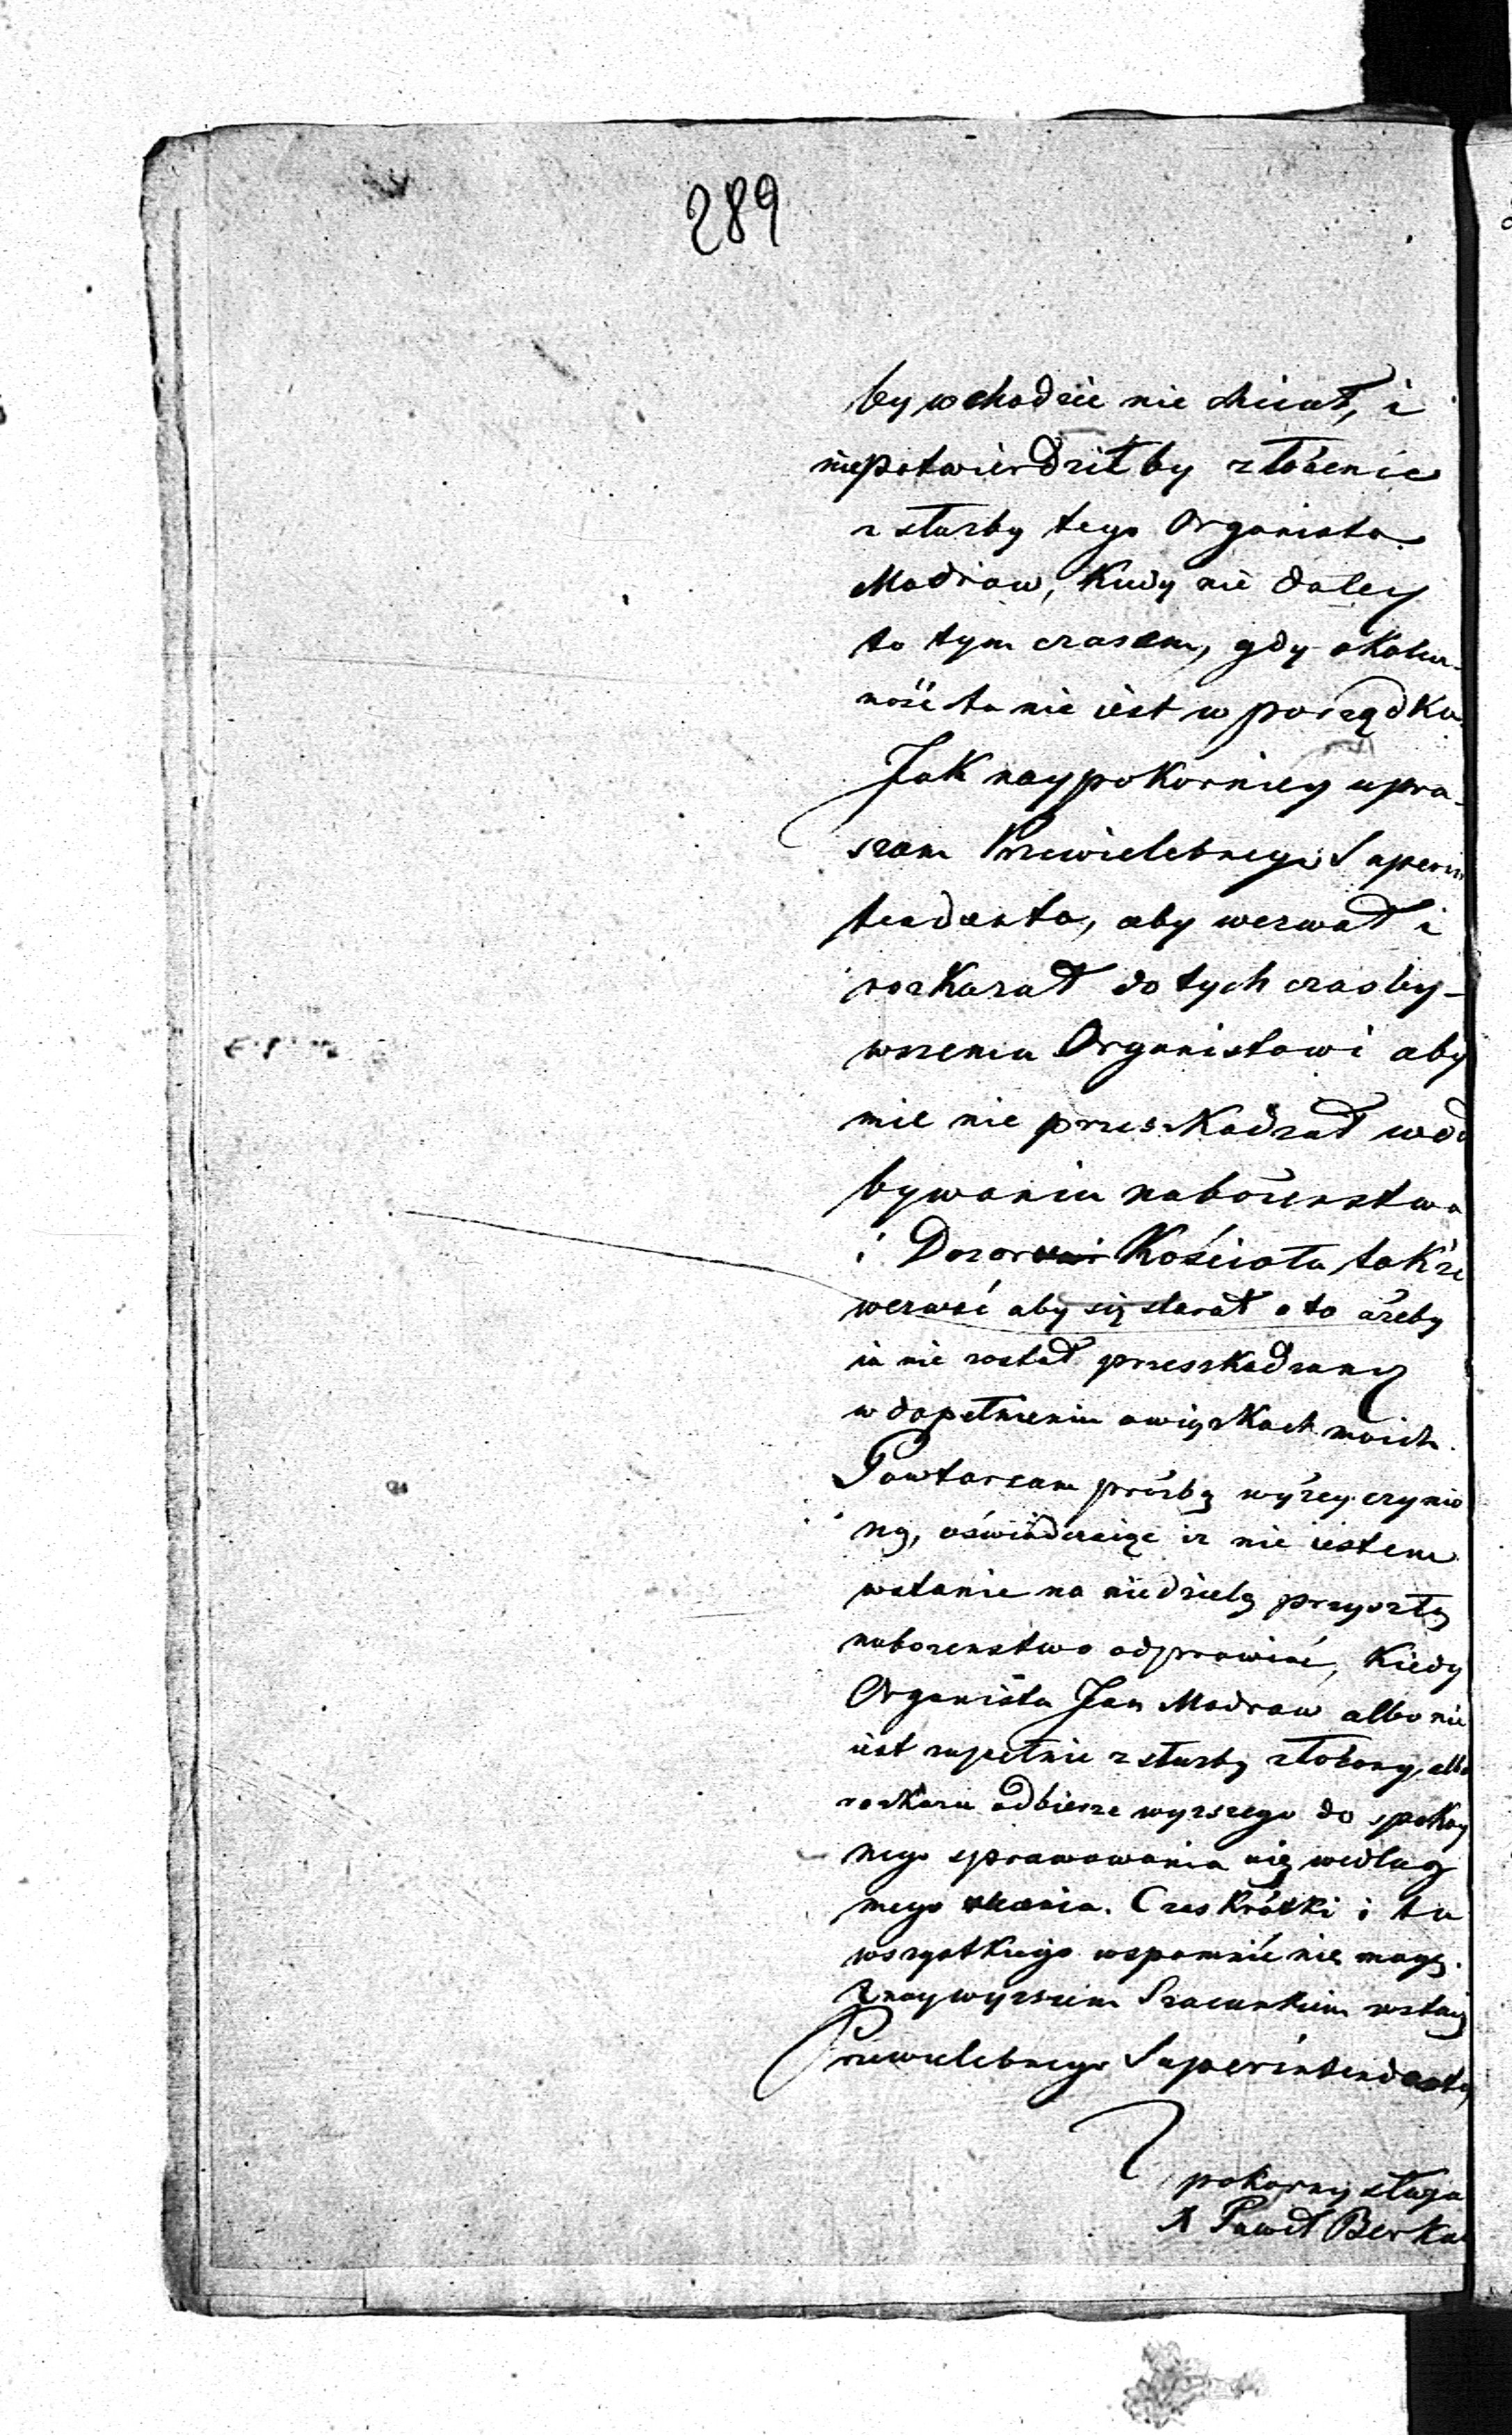 289
by wchodzić nie chciał, i
niepotwierdził by złożenie
z służby tego Organista
Madraw, Kiedy nie daley
to tym czasem, gdy okolicz-
ność ta nie iest w porządku.
Jak naypokorniey upra-
szam Przewielebnego Superin
tendenta, aby wezwał i
rozkazał do tych czas by-
wszemu Organistowi aby
mie nie przeszkadzał w od
bywaniu nabożenstwa
i Dozor Kościoła także
wezwać aby się starał o to ażeby
ia nie został przeszkadzany
w dopełnieniu owiązkach moich.
Powtarzam prózbę wyżey czynio
ną, oświadczaiąc iz nie iestem
wstanie na niedzielę przyszłą
nabozenstwo odprawiać, Kiedy
Organista Jan Madraw albo nie
iest zupełnie z służby złożony, albo
rozkazu odbierze wyzszego do spokoy
nego sprawowania się według
mego zdania. Czas krótki i tu
wszystkiego wspomnić nie mogę.
Z naywyzszem Szacunkiem zostaię
Przewielebnego Superintendenta
pokorny sługa
X Paweł Berka